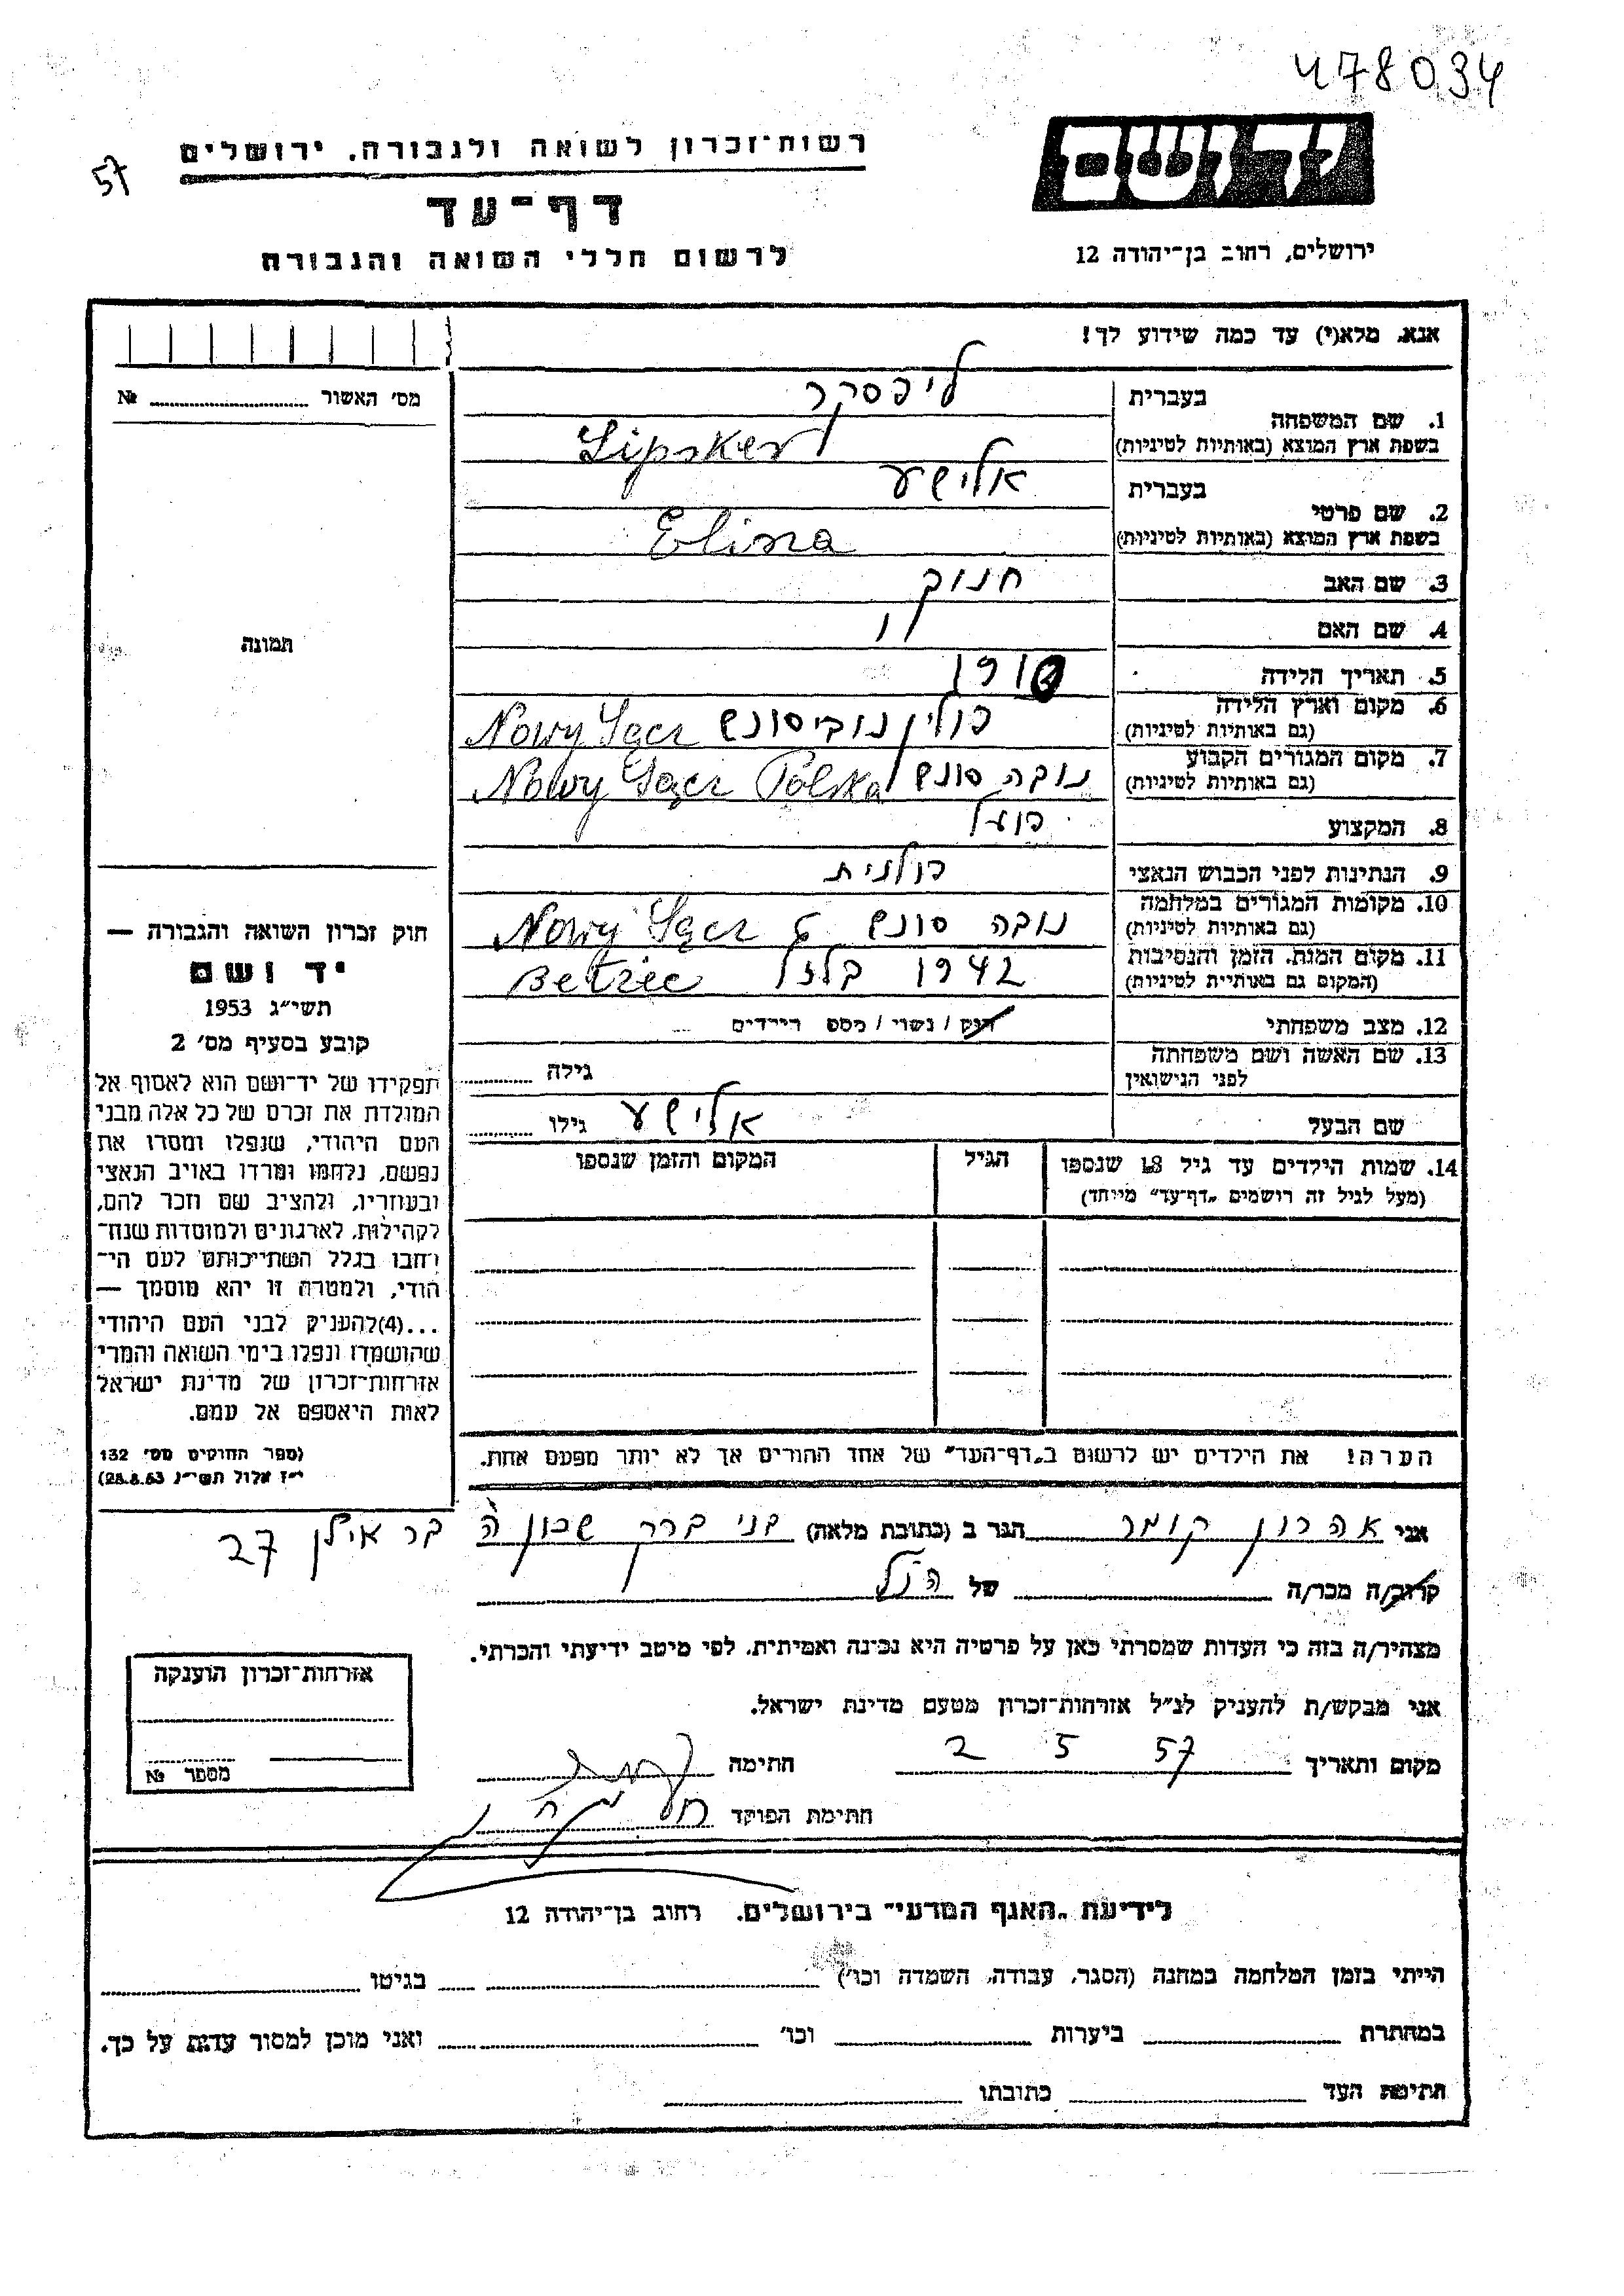 478034
יד ושם
רשות־זכרון לשואה ולגבורה. ירושלים
57
דף־עד
לרשום חללי השואה והגבורה
ירושלים, רחוב בן־יהודה 12
אנא. מלא(י) עד כמה שידוע לך!
מס׳ האשור № 
1. שם המשפחה בעברית ליפסקר
בשפת ארץ המוצא (באותיות לטיניות) Lipsker
2. שם פרטי בעברית אלישע
בשפת ארץ המוצא (באותיות לטיניות) Elisza
3. שם האב חנוך
4. שם האם
5. תאריך הלידה
6. מקום וארץ הלידה פולין נובי סונץ Nowy Sącz
(גם באותיות לטיניות)
7. מקום המגורים הקבוע נובה סונץ Nowy Sącz Polska
(גם באותיות לטיניות)
8. המקצוע פועל
9. הנתינות לפני הכבוש הנאצי פולנית
10. מקומות המגורים במלחמה נובה סונץ Nowy Sącz
(גם באותיות לטיניות)
11. מקום המות. הזמן והנסיבות 1942 בלזץ Bełzec
(המקום גם באותיית לטיניות)
12. מצב משפחתי רווק / נשוי / מספר הילדים
13. שם האשה ושם משפחתה גילה
לפני הנישואין
שם הבעל אלישע גילו
14. שמות הילדים עד גיל 18 שנספו הגיל המקום והזמן שנספו
(מעל לגיל זה רושמים „דף־עד״ מייחד)
תמונה
חוק זכרון השואה והגבורה —
יד ושם
תשי״ג 1953
קובע בסעיף מס׳ 2
תפקידו של יד־ושם הוא לאסוף אל
המולדת את זכרם של כל אלה מבני
העם היהודי, שנפלו ומסרו את
נפשם, נלחמו ומרדו באויב הנאצי
ובעוזריו, ולהציב שם וזכר להם,
לקהילות, לארגונים ולמוסדות שנח־
רחבו בגלל השתייכותם לעם הי־
הודי, ולמטרה זו יהא מוסמך —
...(4)להעניק לבני העם היהודי
שהושמדו ונפלו בימי השואה והמרי
אזרחות־זכרון של מדינת ישראל
לאות היאספם אל עמם.
(ספר החוקים מס׳ 132
י״ז אלול תשי״ג 28.8.53)
הערה! את הילדים יש לרשום ב„דף־העד״ של אחד ההורים אך לא יותר מפעם אחת.
אני אהרון קומר הגר ב (כתובת מלאה) בני ברק שכון ה בר אילן 27
קרוב/ה מכר/ה של הנ״ל
מצהיר/ה בזה כי העדות שמסרתי כאן על פרטיה היא נכינה ואמיתית. לפי מיטב ידיעתי והכרתי.
אני מבקש/ת להעניק לנ״ל אזרחות־זכרון מטעם מדינת ישראל.
מקום ותאריך 2 5 57 חתימה
חתימת הפוקד
אזרחות־זכרון הוענקה
מספר №
לידיעת „האגף המדעי״ בירושלים. רחוב בן־יהודה 12
הייתי בזמן המלחמה במחנה (הסגר, עבודה, השמדה וכו׳) בגיטו
במחתרת ביערות וכו׳ ואני מוכן למסור עדות על כך.
חתימת העד כתובתו